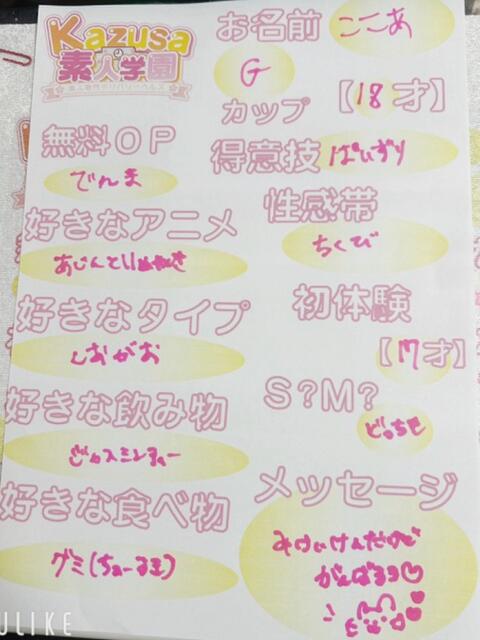 Kazusa
素人学園
素人専門デリバリーヘルス
お名前 ここあ
G
カップ 【18才】
無料OP
でんま
得意技 ぱいずり
好きなアニメ
性感帯
ちくび
好きなタイプ
しおがお
初体験
【17才】
好きな飲み物
じゃすみんてぃー
S?M?
どっちも
好きな食べ物
グミ(ちゅーる王)
メッセージ
みけいけんだけど
がんばるヨ♡
ULIKE